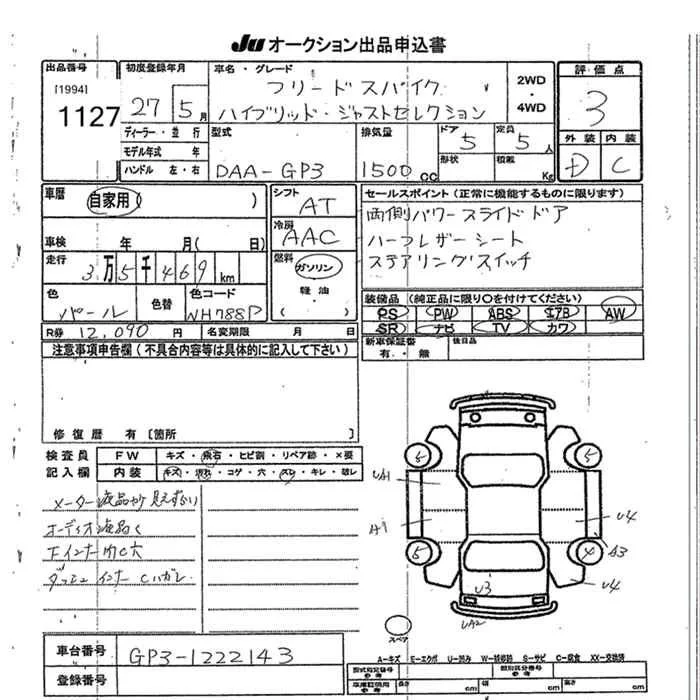 JU オークション出品申込書
出品番号 初度登録年月 車名・グレード 2WD・4WD 評価点
[1994] 1127
27 5月
フリードスパイク
ハイブリッド・ジャストセレクション
3
外装 内装
D C
ディーラー・並行
モデル年式 年
ハンドル 左・右
型式 DAA-GP3
排気量 1500 CC
ドア 5 定員 5人
形状 積載 Kg
車歴 自家用( )
シフト AT
セールスポイント(正常に機能するものに限ります)
両側パワースライドドア
ハーフレザーシート
ステアリングスイッチ
車検 年 月( 日)
冷房 AAC
走行 3万5千469km
燃料 ガソリン
軽油
( )
色 パール 色替 色コード NH788P
装備品(純正品に限り○を付けてください)
PS PW ABS エアB AW
SR ナビ TV カワ
R券 12,090円 名変期限 月 日
新車保証書 有・無 後日品
注意事項申告欄(不具合内容等は具体的に記入して下さい)
修復歴 有〔箇所 〕
検査員記入欄
FW キズ・飛石・ヒビ割・リペア跡・×要
内装 キズ・汚れ・コゲ・穴・スレ・キレ・破レ
メーター液晶
オーディオ液晶
Fインナー
ダッシュ インナー Cハガレ
5 5
UA1
A1
U4
A3
5 4
U3
U4
UA2
スペア
車台番号 GP3-1222143
登録番号
A―キズ E―エクボ U―凹み W―補修跡 S―サビ C―腐食 XX―交換済
型式指定番号 参考 類別区分番号 参考
車庫証明用 参考 長さ cm 幅 cm 高さ cm